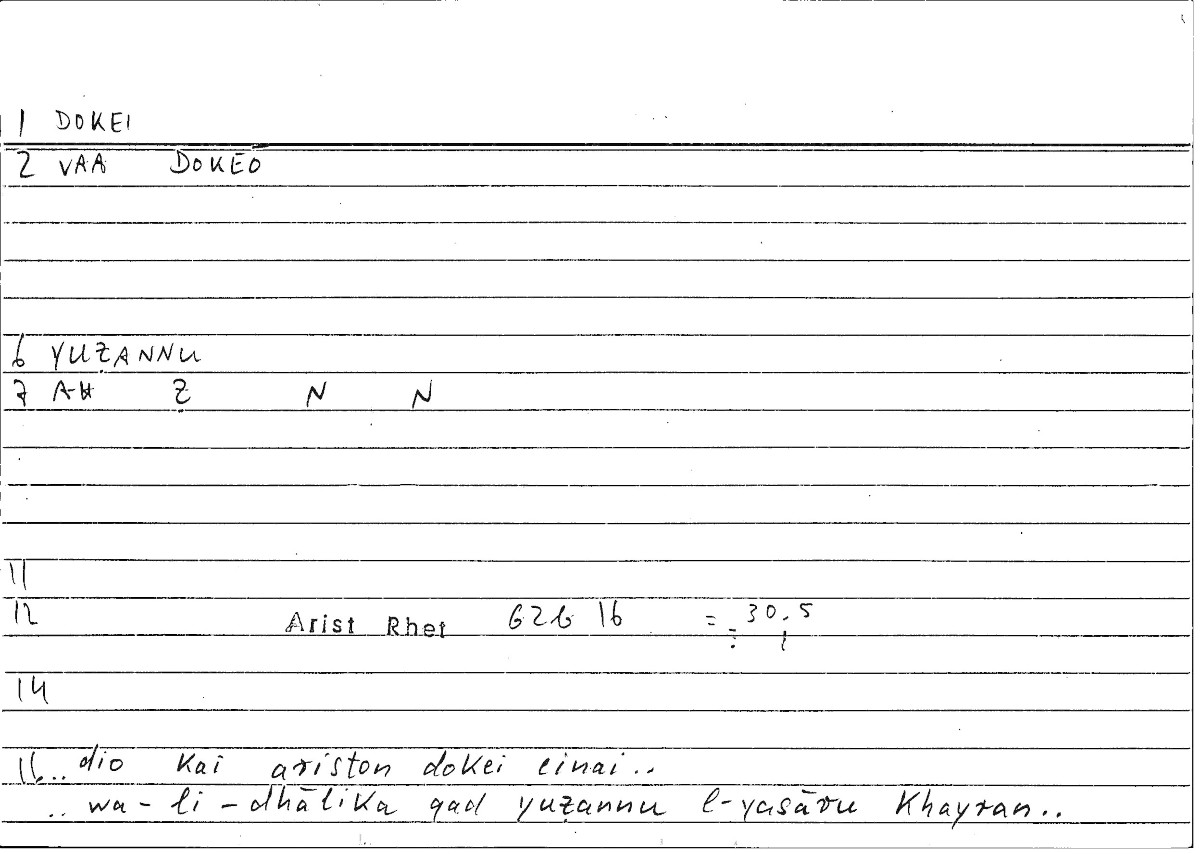 1 DOKEI
2 VAA DOKEO
6 YUẒANNU
7 A-H Ẓ N N
11
12 Arist Rhet 62b 16 = 30.5
14
16 ..dio kai ariston dokei einai..
..wa-li-dhālika qad yuẓannu l-yasāru khayran..